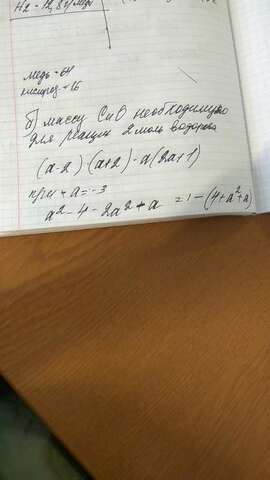 H2 - 12,8г меди
медь = 64
кислород = 16
б) массу CuO необходимую
для реакции 2 моль водорода
(a-2)·(a+2) - a(2a+1)
при a = -3
a² - 4 - 2a² + a = 1 - (4+a²+a)